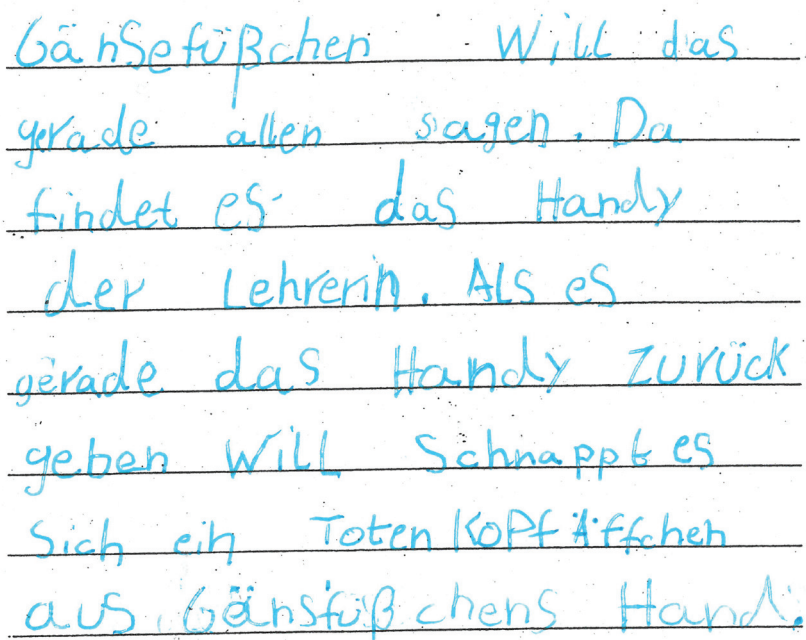 Gänsefüßchen will das
gerade allen sagen. Da
findet es das Handy
der Lehrerin. Als es
gerade das Handy zurück
geben will schnappt es
sich ein Totenkopfäffchen
aus Gänsfüßchens Hand.